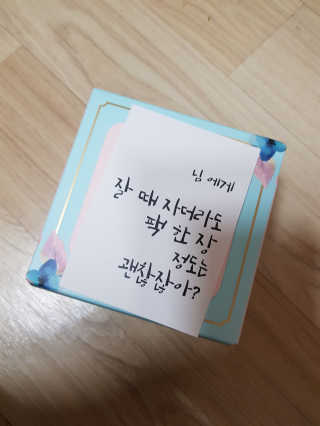 님에게
잘 때 자더라도
팩 한 장
정도는
괜찮잖아?